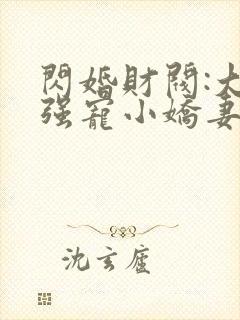 閃婚財閥:大
强寵小嬌妻
沈玄廬